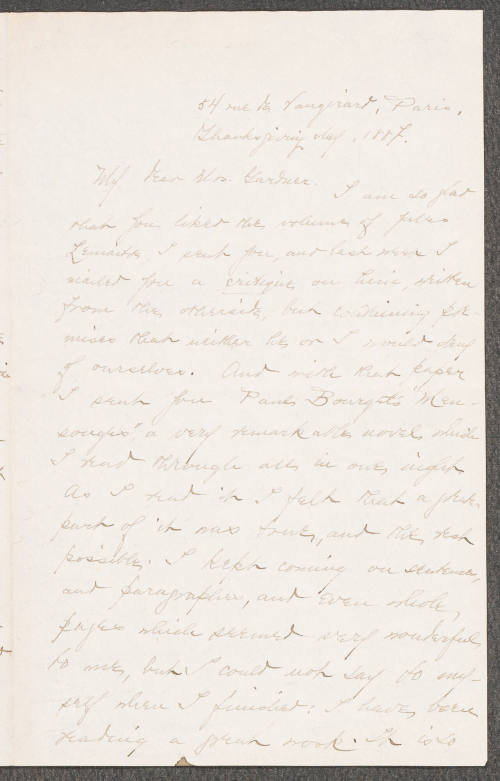 54 rue de Vaugirard, Paris,
Thanksgiving day, 1887.
My dear Mrs. Gardner.
I am so glad
that you liked the volume of Jules
Lemaitre I sent you, and last week I
mailed you a critique on him, written
from the otherside, but containing pre-
mises that neither he or I would deny
of ourselves. And with that paper
I sent you Paul Bourget's "Men-
songes", a very remarkable novel which
I read through all in one night.
As I read it I felt that a great
part of it was true, and the rest
possible. I kept coming on sentences,
and paragraphes, and even whole
pages which seemed very wonderful
to me, but I could not say to my-
self when I finished: I have been
reading a great work. It is so